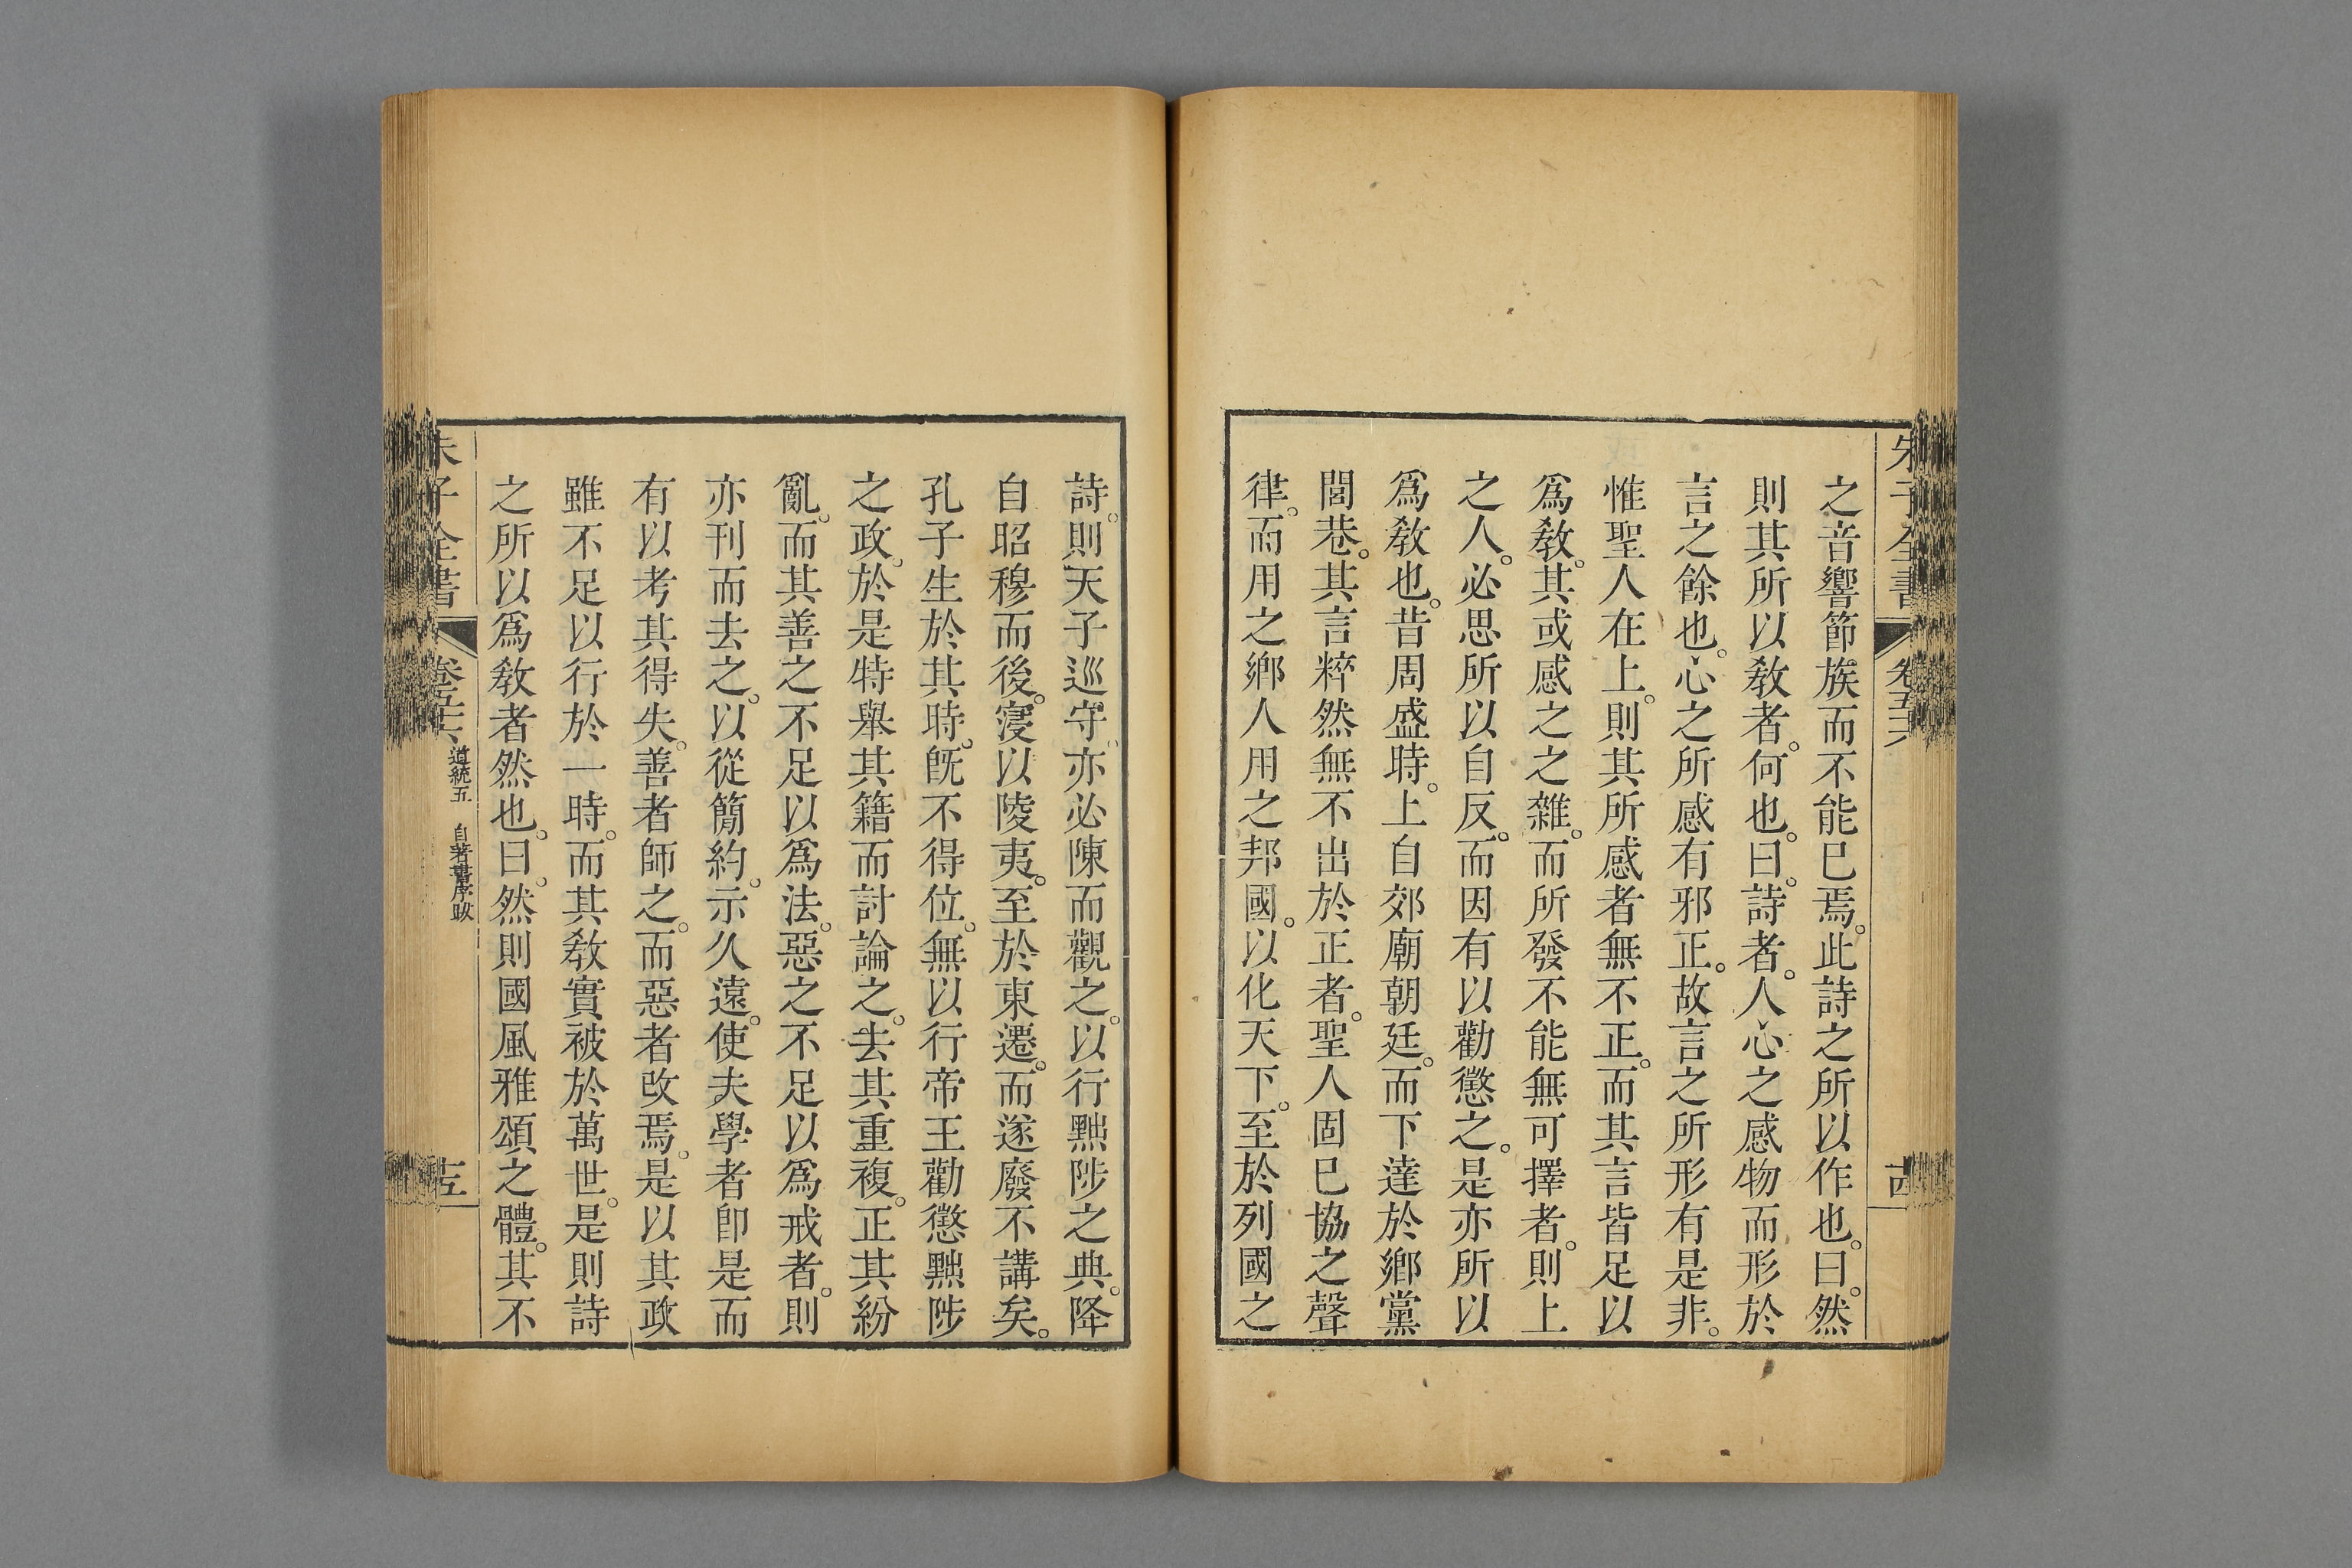 朱子全書 卷五六 十四
之音響節族而不能已焉。此詩之所以作也。曰。然
則其所以敎者。何也。曰。詩者。人心之感物而形於
言之餘也。心之所感有邪正。故言之所形有是非。
惟聖人在上。則其所感者無不正。而其言皆足以
爲敎。其或感之之雜。而所發不能無可擇者。則上
之人。必思所以自反。而因有以勸懲之。是亦所以
爲敎也。昔周盛時。上自郊廟朝廷。而下達於鄉黨
閭巷。其言粹然無不出於正者。聖人固已協之聲
律。而用之鄉人用之邦國。以化天下。至於列國之
詩。則天子巡守。亦必陳而觀之。以行黜陟之典。降
自昭穆而後。寖以陵夷。至於東遷。而遂廢不講矣。
孔子生於其時。旣不得位。無以行帝王勸懲黜陟
之政。於是特舉其籍而討論之。去其重複。正其紛
亂。而其善之不足以爲法。惡之不足以爲戒者。則
亦刊而去之。以從簡約。示久遠。使夫學者卽是而
有以考其得失。善者師之。而惡者改焉。是以其政
雖不足以行於一時。而其敎實被於萬世。是則詩
之所以爲敎者然也。曰。然則國風雅頌之體。其不
朱子全書 卷五六 道統五 自著書序政 十五